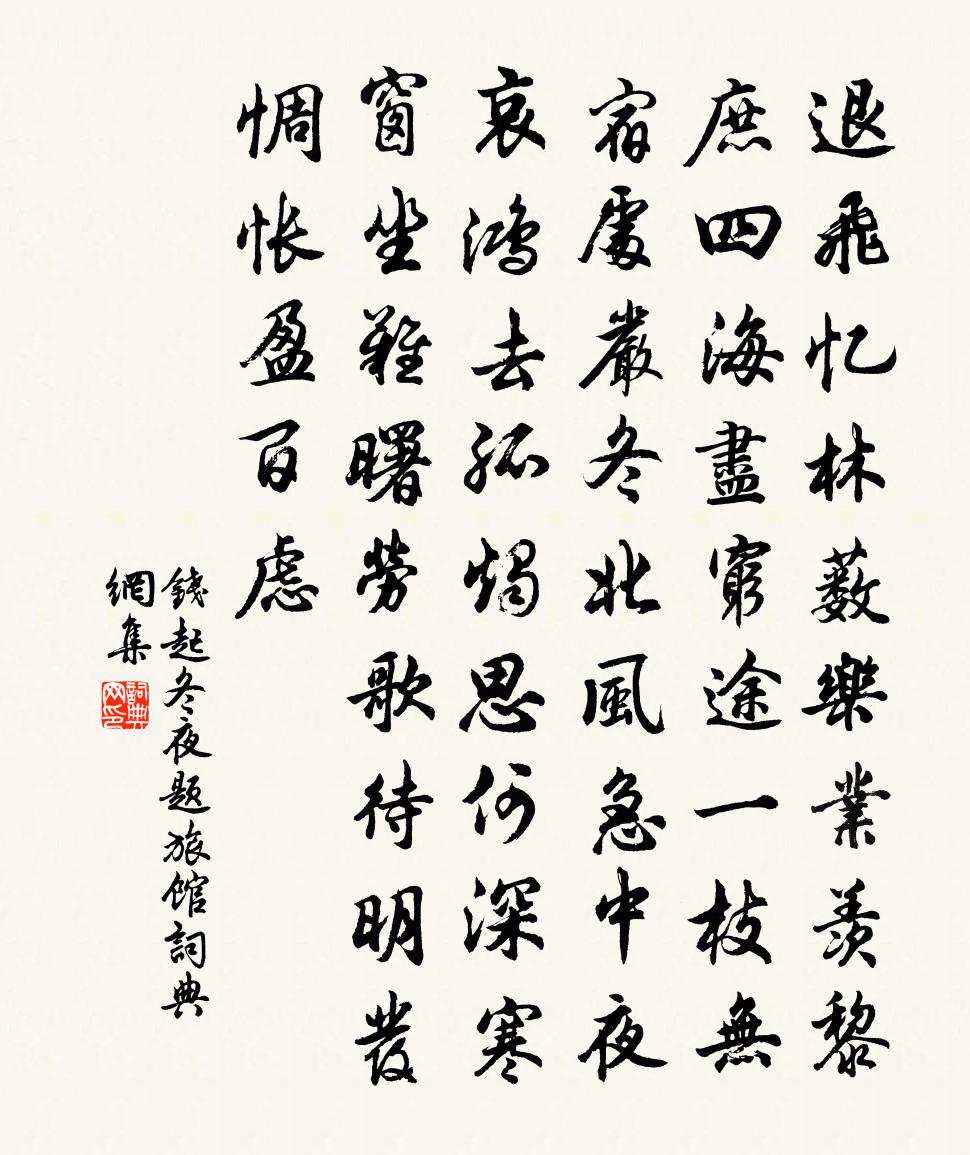 退飛忆林薮樂業羨黎
庶四海盡窮途一枝無
宿處嚴冬北風急中夜
哀鴻去孤燭思何深寒
窗坐難曙勞歌待明發
惆怅盈百慮
錢起冬夜题旅馆詞典
網集
詞典网印